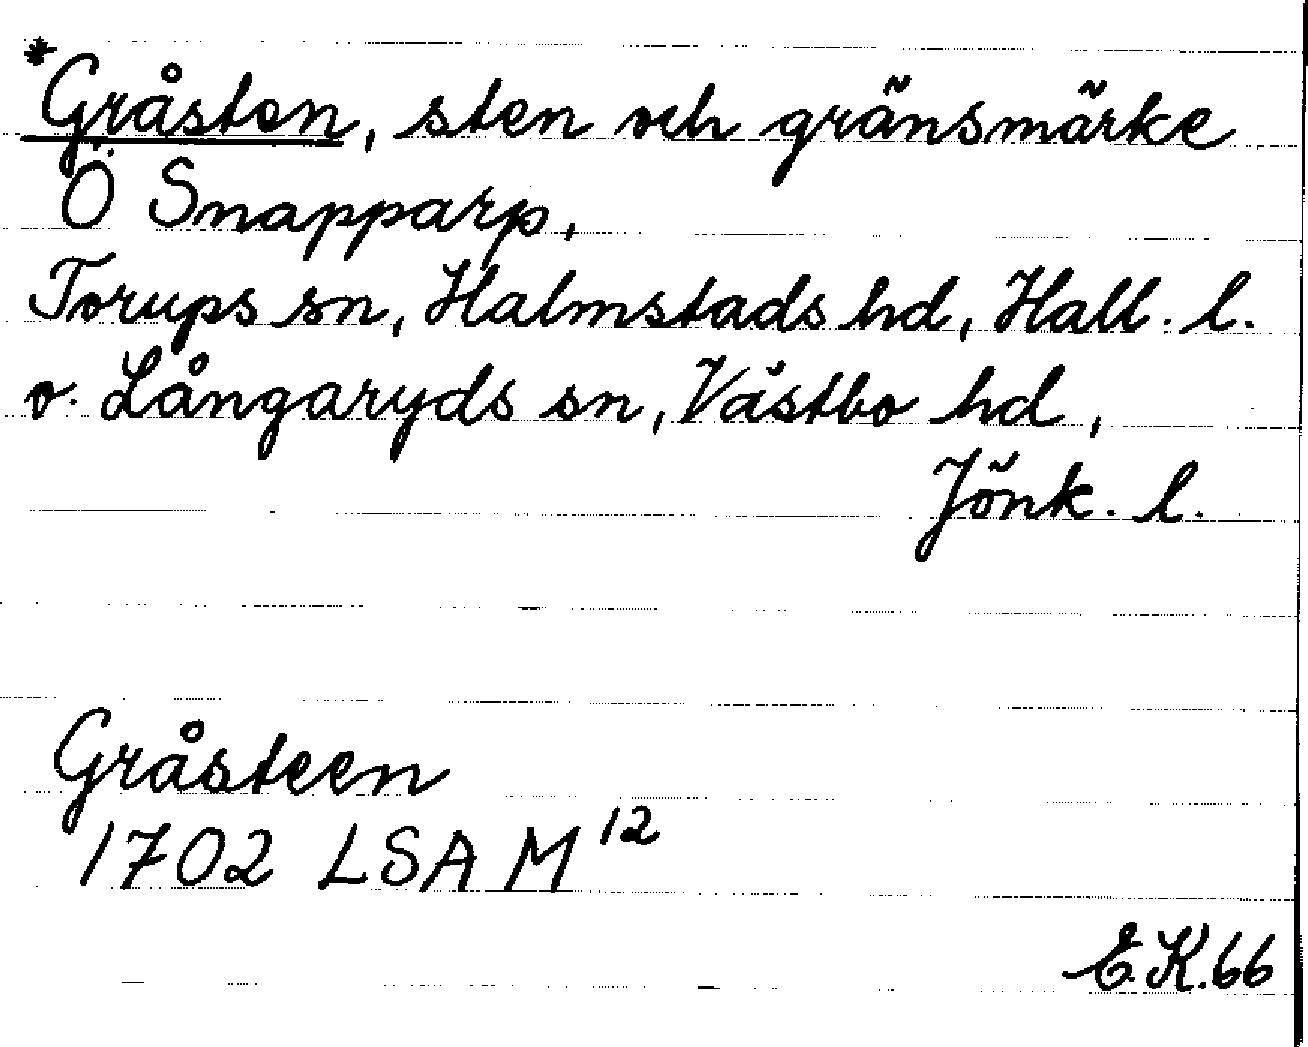 *Gråsten, sten och gränsmärke
Ö Snapparp,
Torups sn, Halmstads hd, Hall. l.
o. Långaryds sn, Västbo hd,
Jönk. l.
Gråsteen
1702 LSA M¹²
E.K. 66